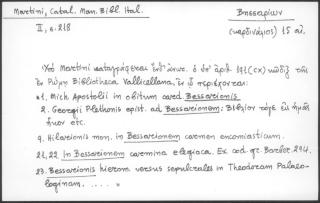 Martini, Catal. Man. Bibl. Ital.
II, σ. 218
Βησσαρίων
(καρδινάλιος) 15 αἰ.
Ὑπὸ Martini καταγράφεται ἐνθ' ἀνωτ. ὁ ὑπ' ἀριθ. 191 (CX) κῶδιξ τῆς
ἐν Ρώμῃ Bibliotheca Vallicellana, ἐν ᾧ περιέχονται:
«1. Mich. Apostolii in obitum card. Bessarionis.
2. Georgii Plethonis epist. ad Bessarionem:
9. Hilarionis mon. in Bessarionem carmen encomiasticum.
21, 22. in Bessarionem carmina elegiaca. Ex cod. gr. Barber. 294.
23. Bessarionis hieromon. versus sepulcrales in Theodoram Palaeo-
loginam. . . . . . »